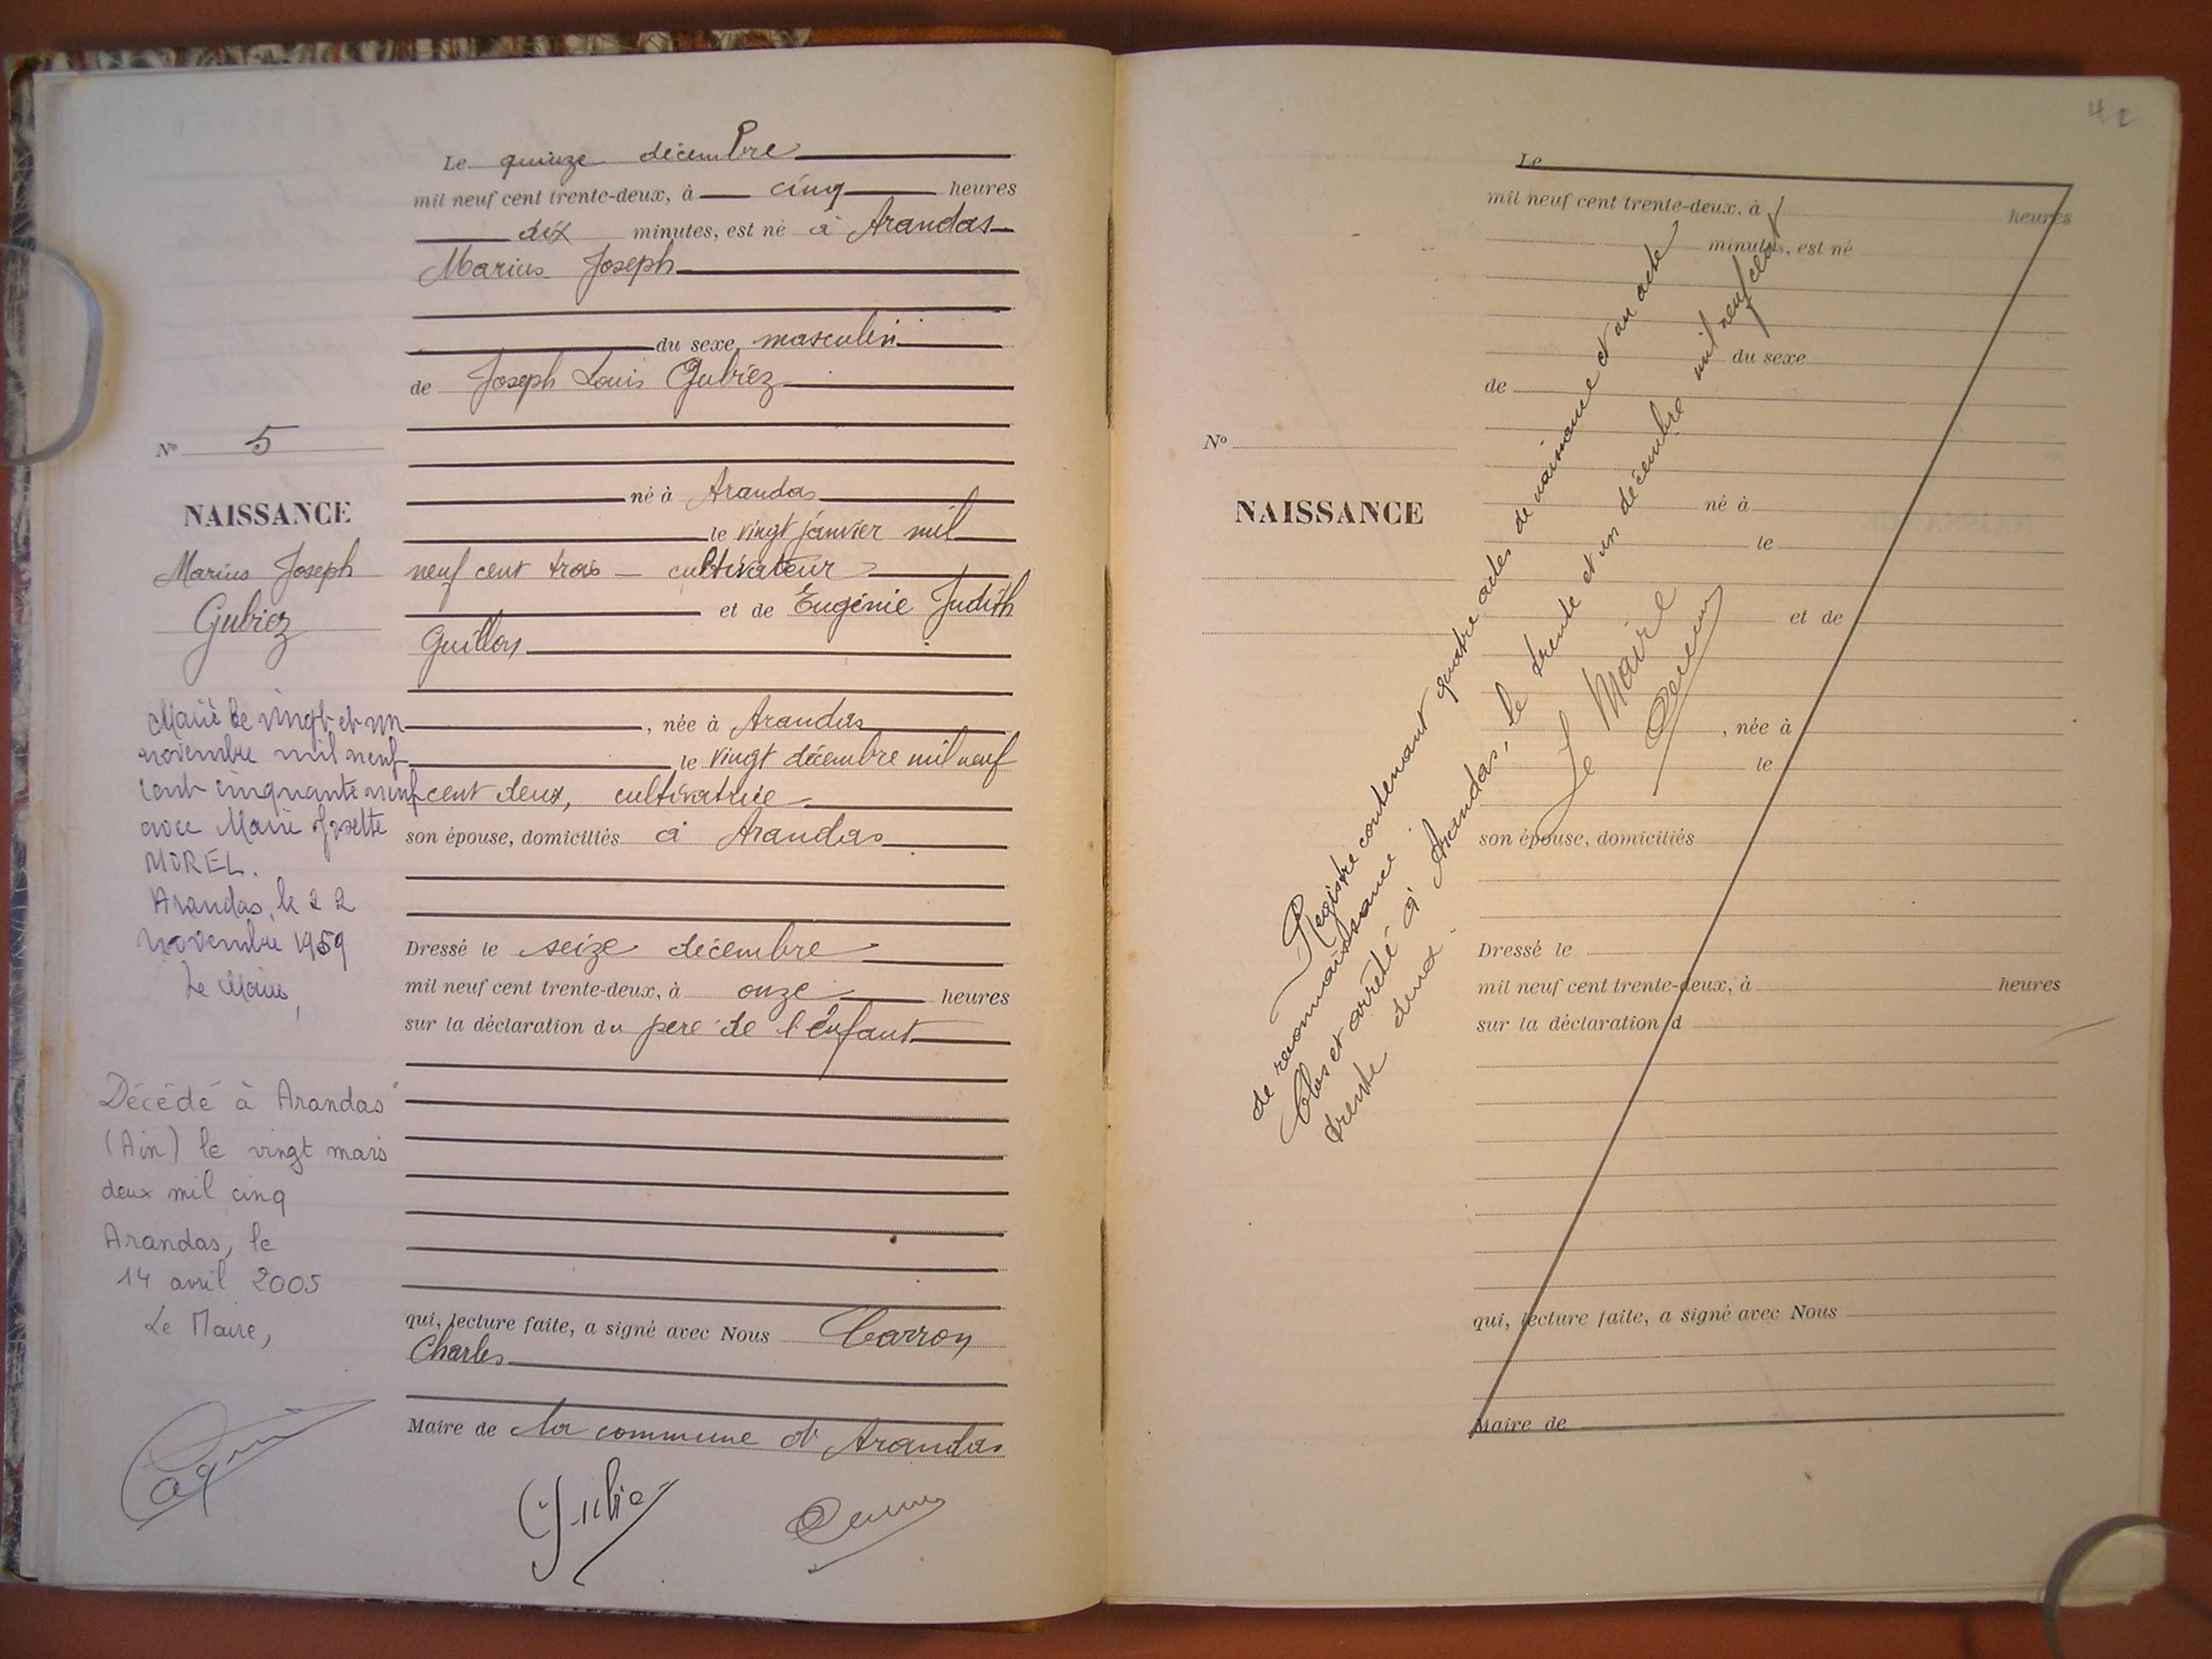 Le quinze décembre
mil neuf cent trente-deux, à cinq heures
dix minutes, est né à Arandas
Marius Joseph
du sexe masculin
de Joseph Louis Gubiez
né à Arandas
le vingt janvier mil
neuf cent trois — cultivateur
et de Eugénie Judith
Guillon
, née à Arandas
le vingt décembre mil neuf
cent deux, cultivatrice
son épouse, domiciliés à Arandas
Dressé le seize décembre
mil neuf cent trente-deux, à onze heures
sur la déclaration du père de l'enfant
qui, lecture faite, a signé avec Nous Carron
Charles
Maire de la commune d'Arandas
No 5
NAISSANCE
Marius Joseph
Gubiez
Marié le vingt-et-un
novembre mil neuf
cent cinquante neuf
avec Marie Josette
MOREL.
Arandas, le 22
novembre 1959
Le Maire,
Décédé à Arandas
(Ain) le vingt mars
deux mil cinq
Arandas, le
14 avril 2005
Le Maire,
42
Le
mil neuf cent trente-deux, à heures
minutes, est né
du sexe
de
No
NAISSANCE
né à
le
et de
, née à
le
son épouse, domiciliés
Dressé le
mil neuf cent trente-deux, à heures
sur la déclaration d
qui, lecture faite, a signé avec Nous
Maire de
Registre contenant quatre actes de naissance et un acte
de reconnaissance
Clos et arrêté à Arandas, le trente et un décembre mil neuf cent
trente deux.
Le Maire